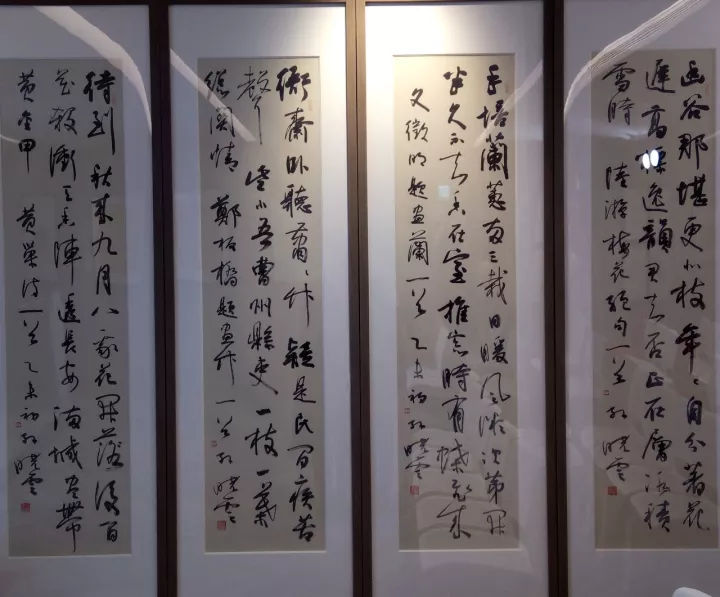 幽谷那堪更北枝年々自分著花
遲高標逸韻君知否正在層冰積
雪時 陸游梅花絕句一首 孔曉雲
手培蘭蕙兩三栽日暖風微次第開
坐久不知香在室推窗時有蝶飛來
文徵明題畫蘭一首 乙未初 孔曉雲
衙齋臥聽蕭々竹疑是民間疾苦
聲 些小吾曹州縣吏一枝一葉
總關情 鄭板橋題畫竹一首 孔曉雲
待到秋來九月八我花開後百
花殺衝天香陣透長安滿城盡帶
黃金甲 黃巢詩一首 乙未初 孔曉雲